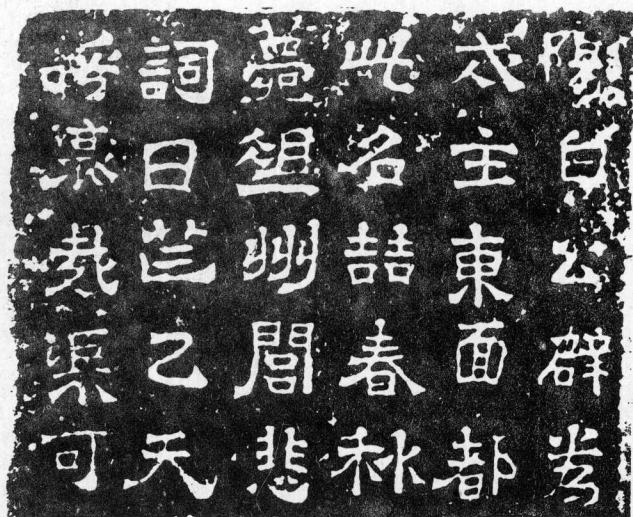 白公辟
主東面都
此名喆春秋
薨俎州閭悲
詞曰芒乙天
呼哀哉渠可